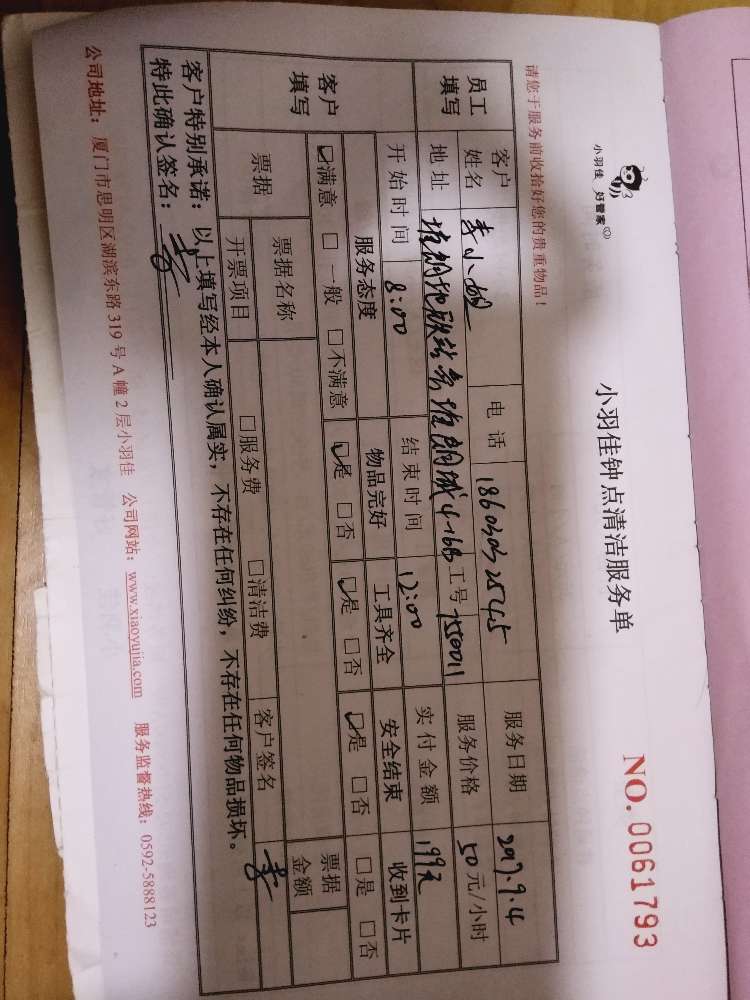 小羽佳 好管家
小羽佳钟点清洁服务单
NO.0061793
请您于服务前收拾好您的贵重物品!
员工填写 客户姓名 李小姐 电话 服务日期 2017.9.4
地址 工号 750011 服务价格 50元/小时
开始时间 8:00 结束时间 12:00 实付金额 199元
客户填写 服务态度 物品完好 工具齐全 安全结束 收到卡片
☑满意 □一般 □不满意 ☑是 □否 ☑是 □否 ☑是 □否 □是 □否
票据 票据名称 客户签名 票据金额
开票项目 □服务费 □清洁费
客户特别承诺:以上填写经本人确认属实,不存在任何纠纷,不存在任何物品损坏。
特此确认签名:
公司地址:厦门市思明区湖滨东路319号A幢2层小羽佳 公司网站:www.xiaoyujia.com 服务监督热线:0592-5888123